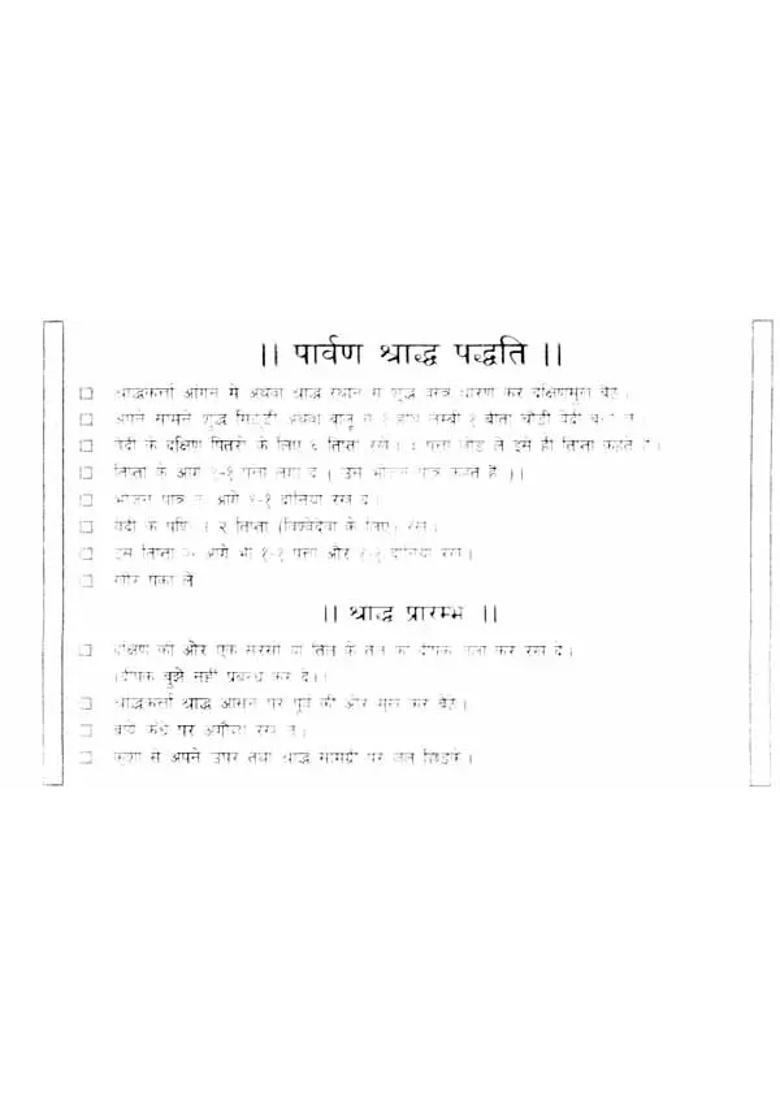 ।। पार्वण श्राद्ध पद्धति ।।
श्राद्धकर्त्ता आंगन में अथवा श्राद्ध स्थान में शुद्ध वस्त्र धारण कर दक्षिणमुख बैठे।
अपने सामने शुद्ध मिट्टी अथवा बालू से १ हाथ लम्बी १ बीता चौड़ी वेदी बना लें।
वेदी के दक्षिण पितरों के लिए ६ तिप्ता रखें। पत्ता जोड़ ले इसे ही तिप्ता कहते है।
तिप्ता के आगे १-१ पत्ता लगा दे। उसे भोजन पात्र कहते है।)
भोजन पात्र के आगे १-१ दोनिया रख दे।
वेदी के २ तिप्ता (विश्वेदेवा के लिए) रखें।
इस तिप्ता के आगे भी १-१ पत्ता और १-१ दोनिया रखें।
खीर पका ले
।। श्राद्ध प्रारम्भ ।।
दक्षिण की ओर एक सरसो या तिल के तेल का दीपक जला कर रख दे।
(दीपक बुझे नहीं प्रबन्ध कर दे।)
श्राद्धकर्त्ता श्राद्ध आसन पर पूर्व की ओर मुख कर बैठे।
बायें कंधे पर अगौछा रख ले।
कुशा से अपने उपर तथा श्राद्ध सामग्री पर जल छिड़के।